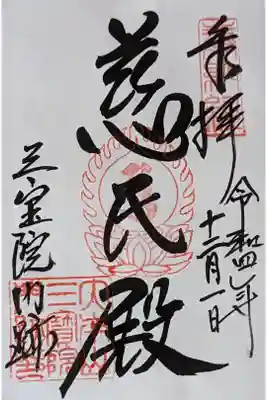 奉拝
令和四年
十二月一日
慈氏殿
三宝院門跡